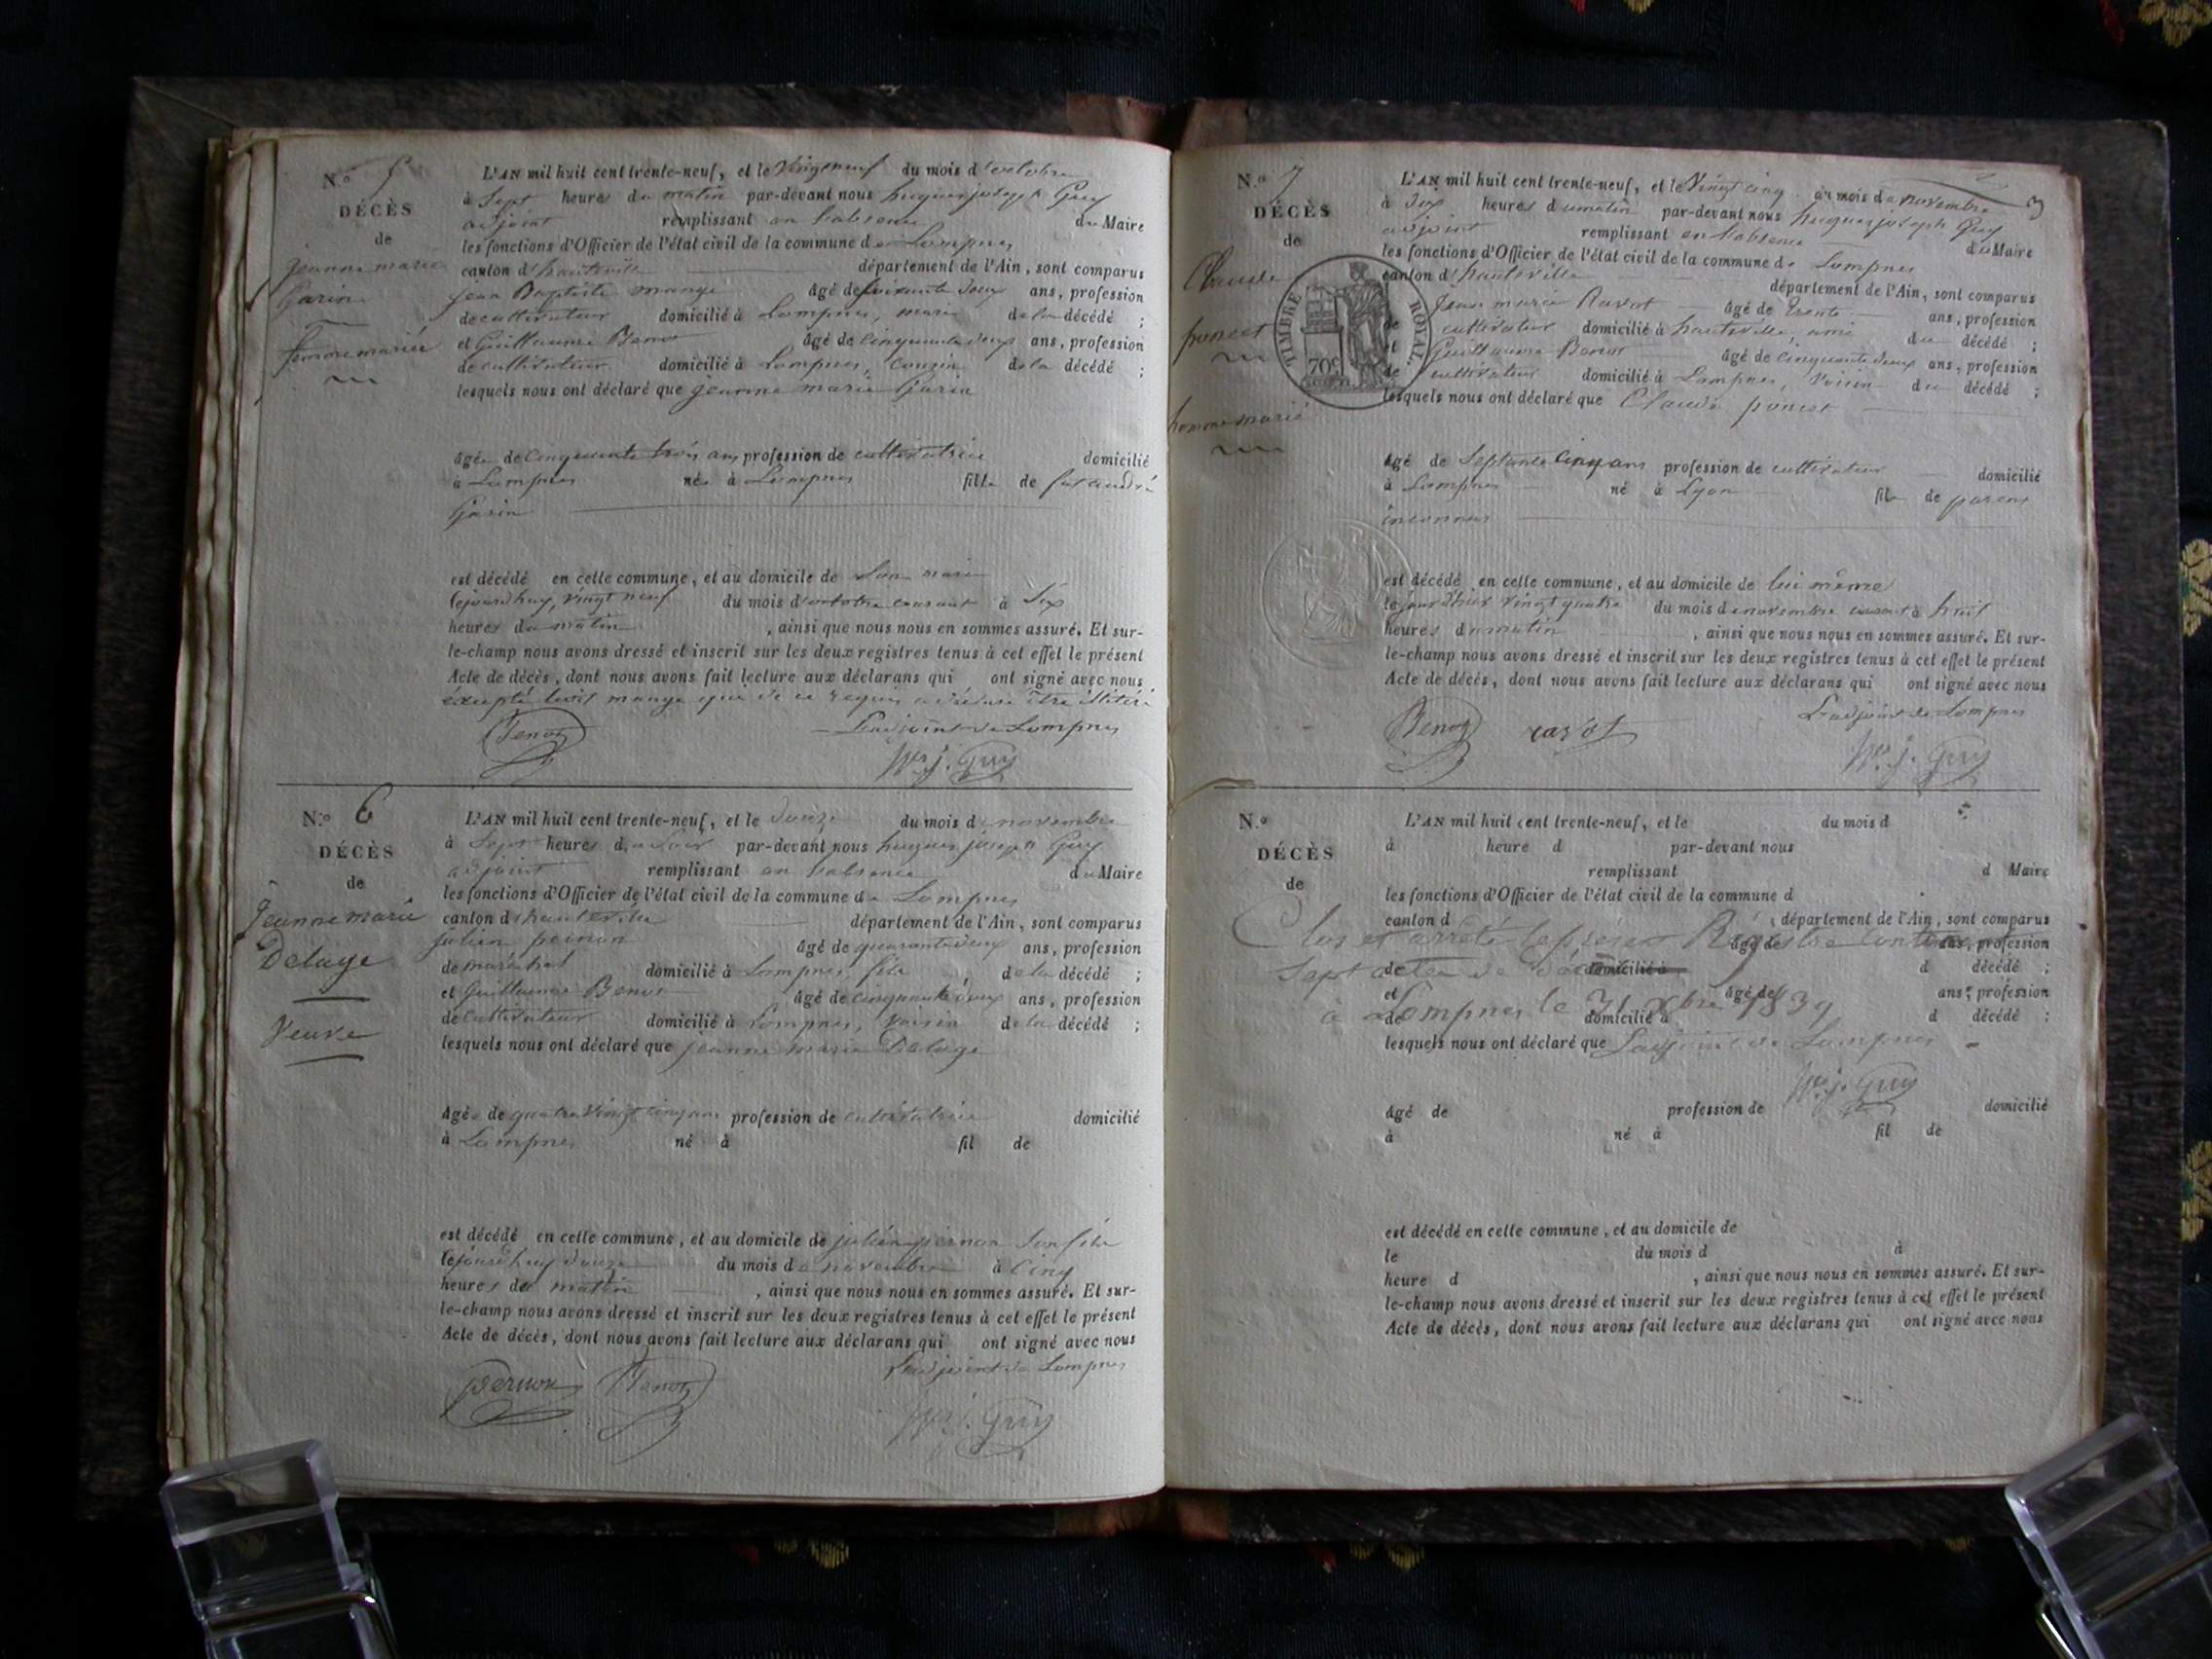 N.o 5
DÉCÈS
de
jeanne marie
Garin
femme mariée
L'AN mil huit cent trente-neuf, et le vingt neuf du mois d'octobre
à Sept heures du matin par-devant nous hugues joseph Guy
adjoint remplissant en l'absence du Maire
les fonctions d'Officier de l'état civil de la commune de Lompnes
canton d'hauteville département de l'Ain, sont comparus
jean Baptiste mange âgé de soixante deux ans, profession
de cultivateur domicilié à Lompnes, mari de la décédé ;
et Guillaume Benoz âgé de cinquante deux ans, profession
de cultivateur domicilié à Lompnes, Cousin de la décédé ;
lesquels nous ont déclaré que jeanne marie Garin
âgée de Cinquante trois ans profession de cultivatrice domicilié
à Lompnes née à Lompnes fille de feu andré
Garin
est décédé en cette commune, et au domicile de Son mari
cejourdhuy, vingt neuf du mois d'octobre courant à Six
heures du matin , ainsi que nous nous en sommes assuré. Et sur-
le-champ nous avons dressé et inscrit sur les deux registres tenus à cet effet le présent
Acte de décès, dont nous avons fait lecture aux déclarans qui ont signé avec nous
excepté ledit mange qui de ce requis a déclaré être illitéré
Benoz L'adjoint de Lompnes
hes j. Guy
N.o 6
DÉCÈS
de
Jeanne marie
Deluge
Veuve
L'AN mil huit cent trente-neuf, et le Douze du mois de novembre
à Sept heures du Soir par-devant nous hugues joseph Guy
adjoint remplissant en l'absence du Maire
les fonctions d'Officier de l'état civil de la commune de Lompnes
canton d'hauteville département de l'Ain, sont comparus
julien pernon âgé de quarante deux ans, profession
de maréchal domicilié à Lompnes, fils de la décédé ;
et Guillaume Benoz âgé de cinquante deux ans, profession
de cultivateur domicilié à Lompnes, voisin de la décédé ;
lesquels nous ont déclaré que jeanne marie Deluge
âgée de quatre vingt cinq ans profession de cultivatrice domicilié
à Lompnes né à fil de
est décédé en cette commune, et au domicile de julien pernon Son fils
cejourdhuy douze du mois de novembre à Cinq
heures du matin , ainsi que nous nous en sommes assuré. Et sur-
le-champ nous avons dressé et inscrit sur les deux registres tenus à cet effet le présent
Acte de décès, dont nous avons fait lecture aux déclarans qui ont signé avec nous
L'adjoint de Lompnes
pernon Benoz
hes j. Guy
3
N.o 7
DÉCÈS
de
Claude
poncet
homme marié
TIMBRE ROYAL
70c
L'AN mil huit cent trente-neuf, et le Vingt cinq du mois de novembre
à Six heures du matin par-devant nous hugues joseph Guy
adjoint remplissant en l'absence du Maire
les fonctions d'Officier de l'état civil de la commune de Lompnes
canton d'hauteville département de l'Ain, sont comparus
jean marie Ravot âgé de Trente ans, profession
de cultivateur domicilié à hauteville, ami du décédé ;
et Guillaume Benoz âgé de cinquante deux ans, profession
de cultivateur domicilié à Lompnes, voisin du décédé ;
lesquels nous ont déclaré que Claude poncet
âgé de Septante Cinq ans profession de cultivateur domicilié
à Lompnes né à Lyon fils de parens
inconnus
est décédé en cette commune, et au domicile de lui même
le jour d'hier vingt quatre du mois de novembre courant à huit
heures du matin , ainsi que nous nous en sommes assuré. Et sur-
le-champ nous avons dressé et inscrit sur les deux registres tenus à cet effet le présent
Acte de décès, dont nous avons fait lecture aux déclarans qui ont signé avec nous
L'adjoint de Lompnes
Benoz ravot
hes j. Guy
N.o
DÉCÈS
de
L'AN mil huit cent trente-neuf, et le du mois d
à heure d par-devant nous
remplissant d Maire
les fonctions d'Officier de l'état civil de la commune d
canton d , département de l'Ain, sont comparus
Clos et arrêté le présent Registre contenant
âgé de ans, profession
Sept actes de décès
de domicilié à d décédé ;
et âgé de ans, profession
à Lompnes le 31 Xbre 1839
de domicilié à d décédé ;
lesquels nous ont déclaré que L'adjoint de Lompnes
hes j. Guy
âgé de profession de domicilié
à né à fil de
est décédé en cette commune, et au domicile de
le du mois d à
heure d , ainsi que nous nous en sommes assuré. Et sur-
le-champ nous avons dressé et inscrit sur les deux registres tenus à cet effet le présent
Acte de décès, dont nous avons fait lecture aux déclarans qui ont signé avec nous